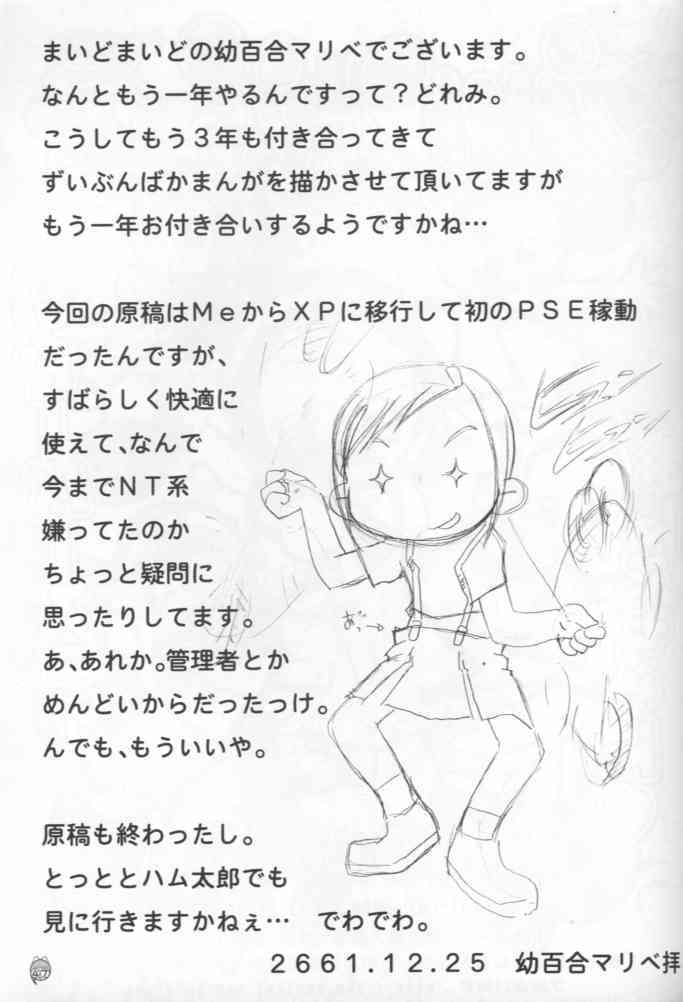 まいどまいどの幼百合マリベでございます。
なんともう一年やるんですって？どれみ。
こうしてもう３年も付き合ってきて
ずいぶんばかまんがを描かさせて頂いてますが
もう一年お付き合いするようですかね…
今回の原稿はＭｅからＸＰに移行して初のＰＳＥ稼動
だったんですが、
すばらしく快適に
使えて、なんで
今までＮＴ系
嫌ってたのか
ちょっと疑問に
思ったりしてます。
あ、あれか。管理者とか
めんどいからだったっけ。
んでも、もういいや。
原稿も終わったし。
とっととハム太郎でも
見に行きますかねぇ…　でわでわ。
２６６１.１２.２５　幼百合マリベ拝